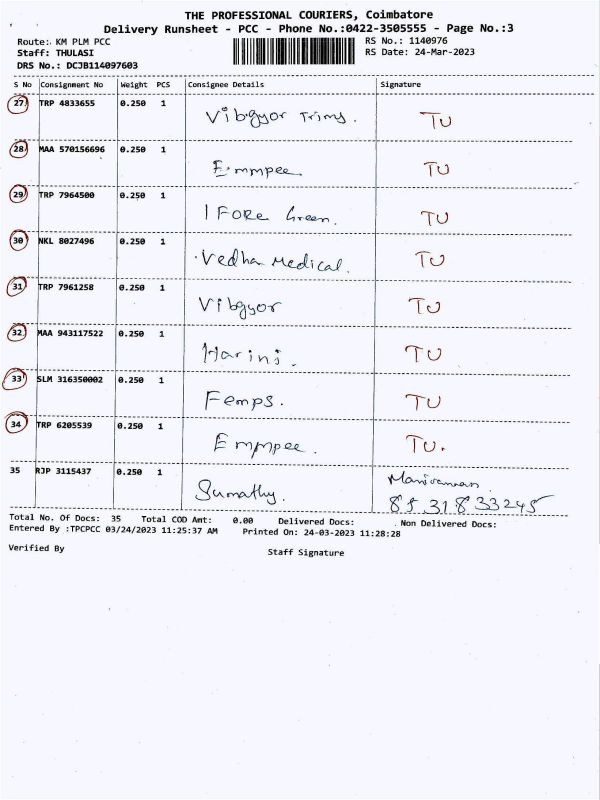 THE PROFESSIONAL COURIERS, Coimbatore
Delivery Runsheet - PCC - Phone No.:0422-3505555 - Page No.:3
Route: KM PLM PCC
RS No.: 1140976
Staff: THULASI
RS Date: 24-Mar-2023
DRS No.: DCJB114097603
S No Consignment No Weight PCS Consignee Details Signature
27 TRP 4833655 0.250 1
Vibgyor Trims. TU
28 MAA 570156696 0.250 1
Emmpee. TU
29 TRP 7964500 0.250 1
1 FORE Green. TU
30 NKL 8027496 0.250 1
Vedha Medical. TU
31 TRP 7961258 0.250 1
Vibgyor TU
32 MAA 943117522 0.250 1
Harini. TU
33 SLM 316350002 0.250 1
Femps. TU
34 TRP 6205539 0.250 1
Emmpee. TU.
35 RJP 3115437 0.250 1
Sumathy.
Total No. Of Docs: 35 Total COD Amt: 0.00 Delivered Docs: Non Delivered Docs:
Entered By :TPCPCC 03/24/2023 11:25:37 AM Printed On: 24-03-2023 11:28:28
Verified By Staff Signature